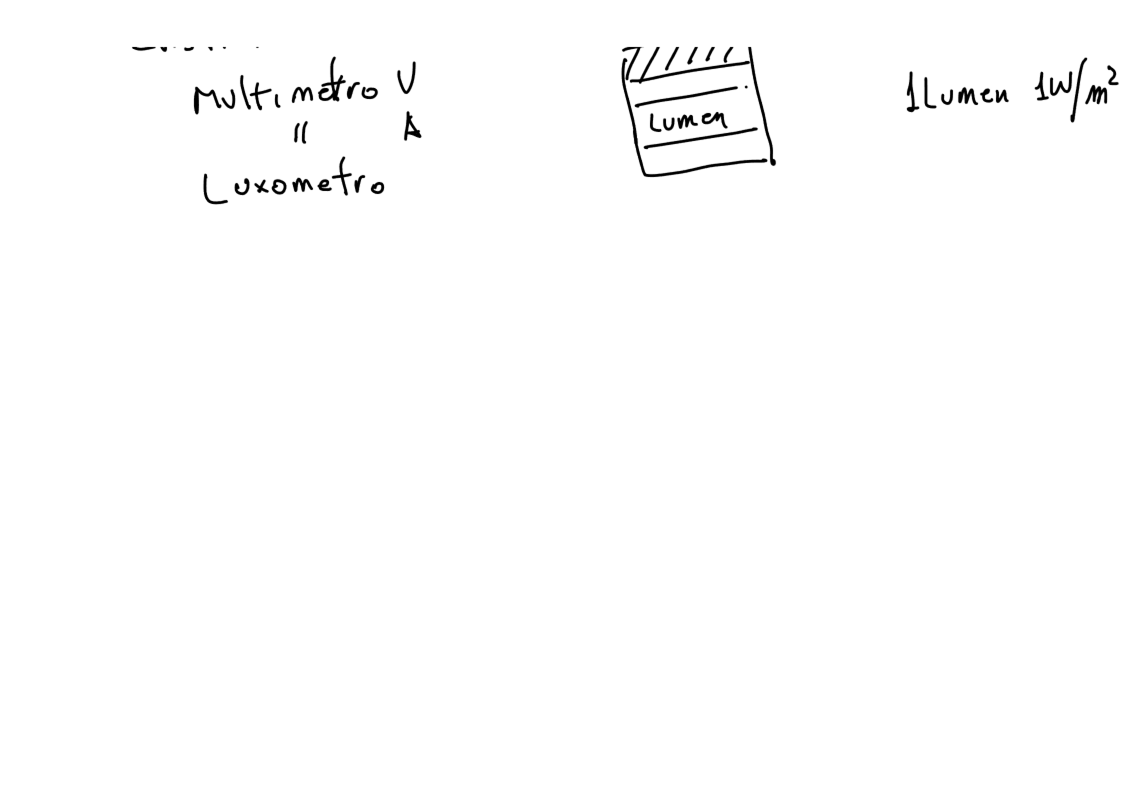 Multimetro V
" A
Luxometro
Lumen
1 Lumen 1W/m²